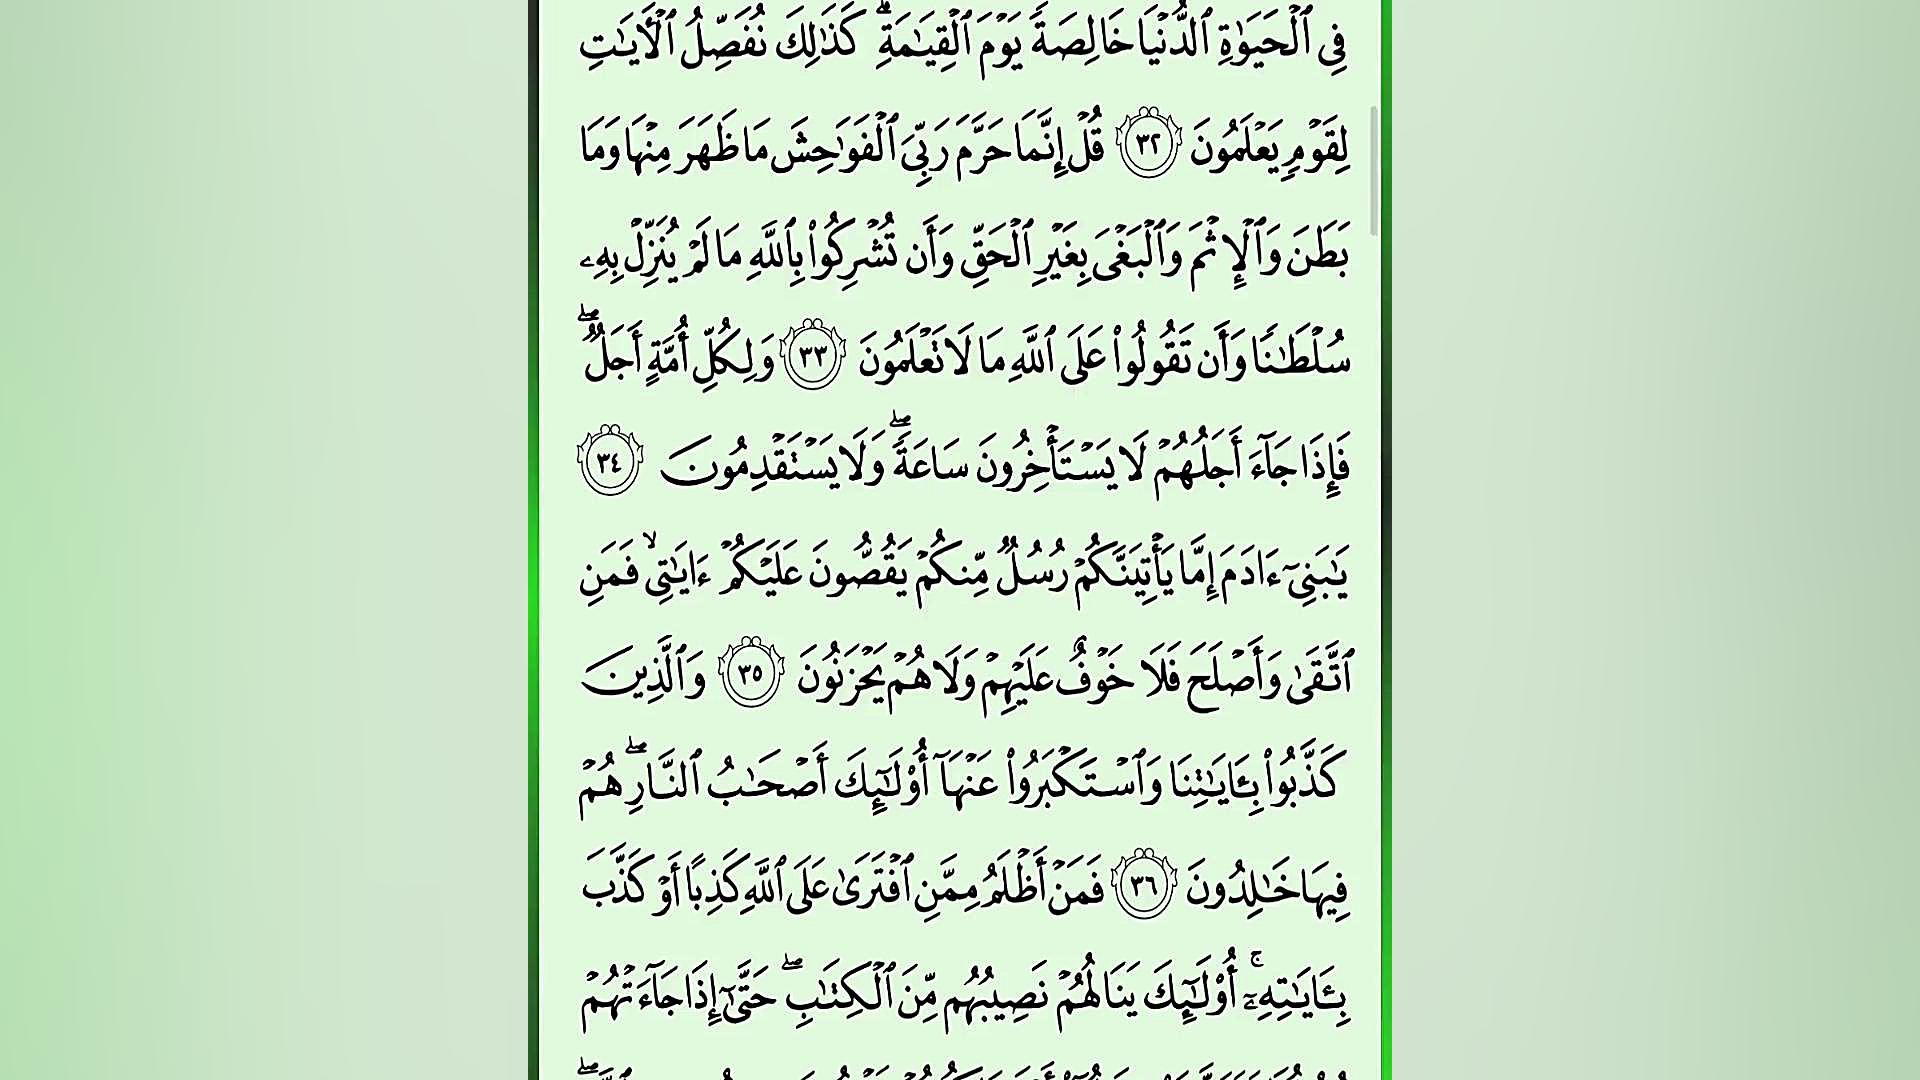 فِي ٱلۡحَيَوٰةِ ٱلدُّنۡيَا خَالِصَةٗ يَوۡمَ ٱلۡقِيَٰمَةِۗ كَذَٰلِكَ نُفَصِّلُ ٱلۡأٓيَٰتِ
لِقَوۡمٖ يَعۡلَمُونَ ٣٢ قُلۡ إِنَّمَا حَرَّمَ رَبِّيَ ٱلۡفَوَٰحِشَ مَا ظَهَرَ مِنۡهَا وَمَا
بَطَنَ وَٱلۡإِثۡمَ وَٱلۡبَغۡيَ بِغَيۡرِ ٱلۡحَقِّ وَأَن تُشۡرِكُواْ بِٱللَّهِ مَا لَمۡ يُنَزِّلۡ بِهِۦ
سُلۡطَٰنٗا وَأَن تَقُولُواْ عَلَى ٱللَّهِ مَا لَا تَعۡلَمُونَ ٣٣ وَلِكُلِّ أُمَّةٍ أَجَلٞۖ
فَإِذَا جَآءَ أَجَلُهُمۡ لَا يَسۡتَأۡخِرُونَ سَاعَةٗۖ وَلَا يَسۡتَقۡدِمُونَ ٣٤
يَٰبَنِيٓ ءَادَمَ إِمَّا يَأۡتِيَنَّكُمۡ رُسُلٞ مِّنكُمۡ يَقُصُّونَ عَلَيۡكُمۡ ءَايَٰتِي ۙ فَمَنِ
ٱتَّقَىٰ وَأَصۡلَحَ فَلَا خَوۡفٌ عَلَيۡهِمۡ وَلَا هُمۡ يَحۡزَنُونَ ٣٥ وَٱلَّذِينَ
كَذَّبُواْ بِـَٔايَٰتِنَا وَٱسۡتَكۡبَرُواْ عَنۡهَآ أُوْلَٰٓئِكَ أَصۡحَٰبُ ٱلنَّارِۖ هُمۡ
فِيهَا خَٰلِدُونَ ٣٦ فَمَنۡ أَظۡلَمُ مِمَّنِ ٱفۡتَرَىٰ عَلَى ٱللَّهِ كَذِبًا أَوۡ كَذَّبَ
بِـَٔايَٰتِهِۦٓۚ أُوْلَٰٓئِكَ يَنَالُهُمۡ نَصِيبُهُم مِّنَ ٱلۡكِتَٰبِۖ حَتَّىٰٓ إِذَا جَآءَتۡهُمۡ